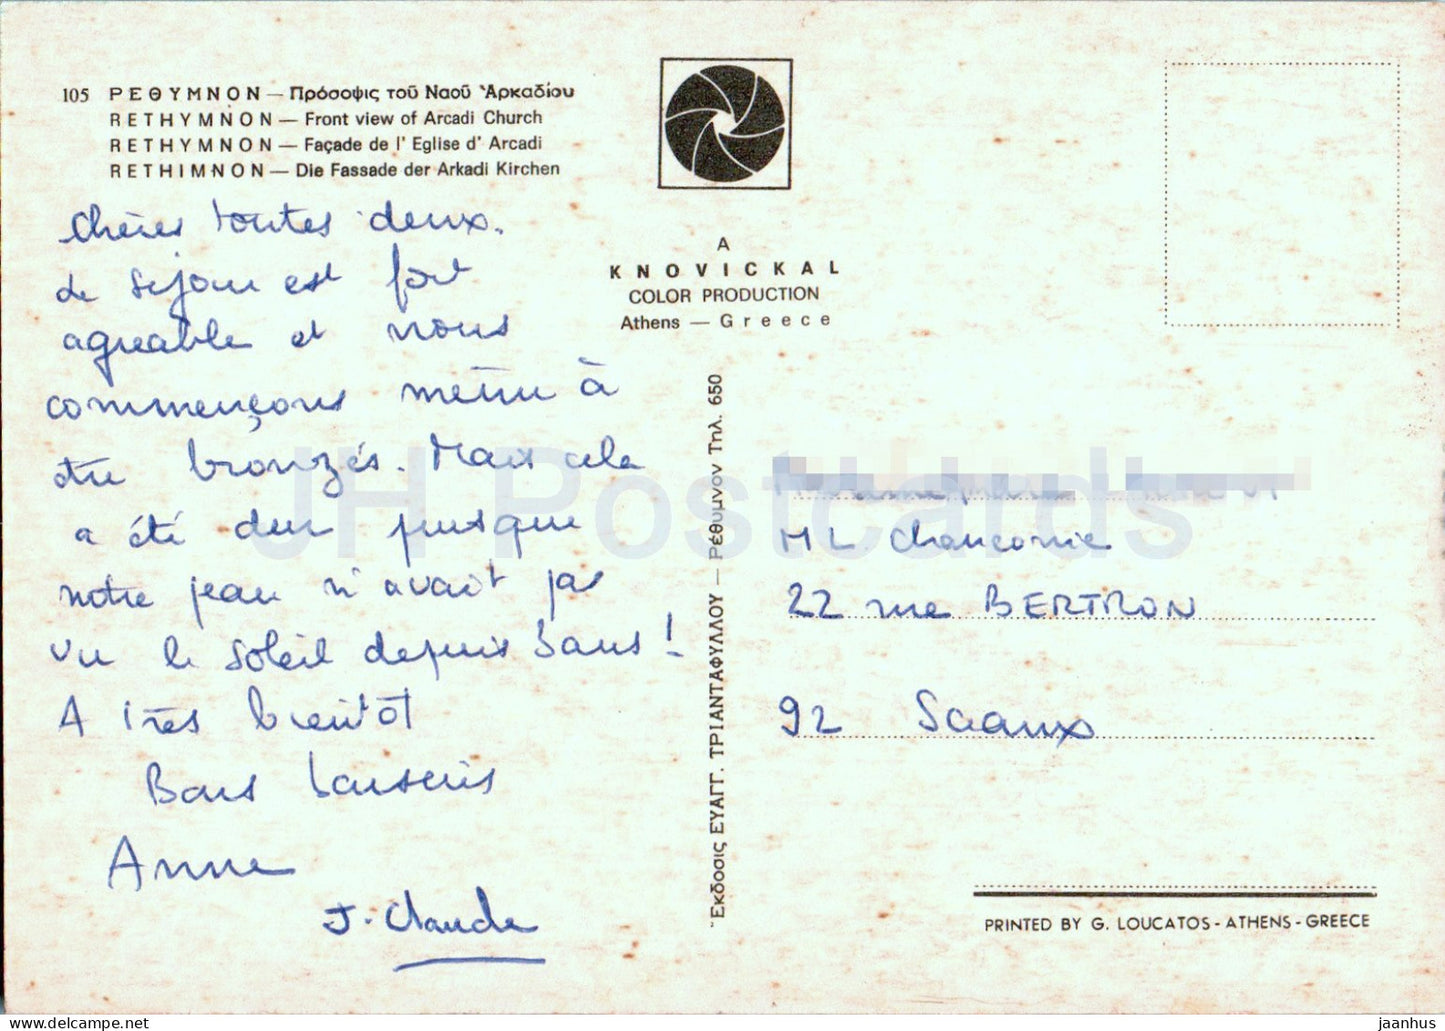 105 ΡΕΘΥΜΝΟΝ — Πρόσοψις τοῦ Ναοῦ Ἀρκαδίου
RETHYMNON — Front view of Arcadi Church
RETHYMNON — Façade de l' Eglise d' Arcadi
RETHIMNON — Die Fassade der Arkadi Kirchen
Chères toutes deux.
Le séjour est fort
agreable et nous
commençons même à
être bronzés. Mais cela
a été dur puisque
notre peau n'avait pas
vu le soleil depuis 3 ans !
A très bientôt
Bons baisers
Anne
J. Claude
A
KNOVICKAL
COLOR PRODUCTION
Athens — Greece
Ἔκδοσις ΕΥΑΓΓ. ΤΡΙΑΝΤΑΦΥΛΛΟΥ — Ρέθυμνον Τηλ. 650
ML
22 rue BERTRON
92 Sceaux
PRINTED BY G. LOUCATOS - ATHENS - GREECE
JH Postcards
hippostcard.com/store/jaanhus
jaanhus